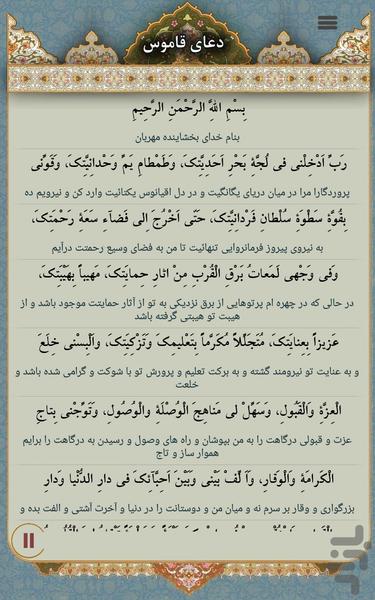 دعای قاموس
بِسْمِ اللَّهِ الرَّحْمَنِ الرَّحِيمِ
بنام خدای بخشاینده مهربان
رَبِّ اَدْخِلْنى فى لُجَّةِ بَحْرِ اَحَدِيَّتِكَ، وَطَمْطامِ يَمِّ وَحْدانِيَّتِكَ، وَقَوِّنى
پروردگارا مرا در میان دریای یگانگیت و در دل اقیانوس یکتائیت وارد کن و نیرویم ده
بِقُوَّةِ سَطْوَةِ سُلْطانِ فَرْدانِيَّتِكَ، حَتّى اَخْرُجَ اِلى فَضآءِ سَعَةِ رَحْمَتِكَ،
به نیروی پیروز فرمانروایی تنهائیت تا من به فضای وسیع رحمتت درآیم
وَفى وَجْهى لَمَعاتُ بَرْقِ الْقُرْبِ مِنْ اثارِ حِمايَتِكَ، مَهيباً بِهَيْبَتِكَ،
در حالی که در چهره ام پرتوهایی از برق نزدیکی به تو از آثار حمایتت موجود باشد و از
هیبت تو هیبتی گرفته باشد
عَزيزاً بِعِنايَتِكَ، مُتَجَلِّلاً مُكَرَّماً بِتَعْليمِكَ وَتَزْكِيَتِكَ، وَاَلْبِسْنى خِلَعَ
و به عنایت تو نیرومند گشته و به برکت تعلیم و پرورش تو با شوکت و گرامی شده باشد و
خلعت
الْعِزَّةِ وَالْقَبُولِ، وَسَهِّلْ لى مَناهِجَ الْوُصْلَةِ وَالْوُصُولِ، وَتَوِّجْنى بِتاجِ
عزت و قبولی درگاهت را به من بپوشان و راه های وصول و رسیدن به درگاهت را برایم
هموار ساز و تاج
الْكَرامَةِ وَالْوَقارِ، وَاَلِّفْ بَيْنى وَبَيْنَ اَحِبَّآئِكَ فى دارِ الدُّنْيا وَدارِ
بزرگواری و وقار بر سرم نه و میان من و دوستانت را در دنیا و آخرت آشتی و الفت بده و
بازار